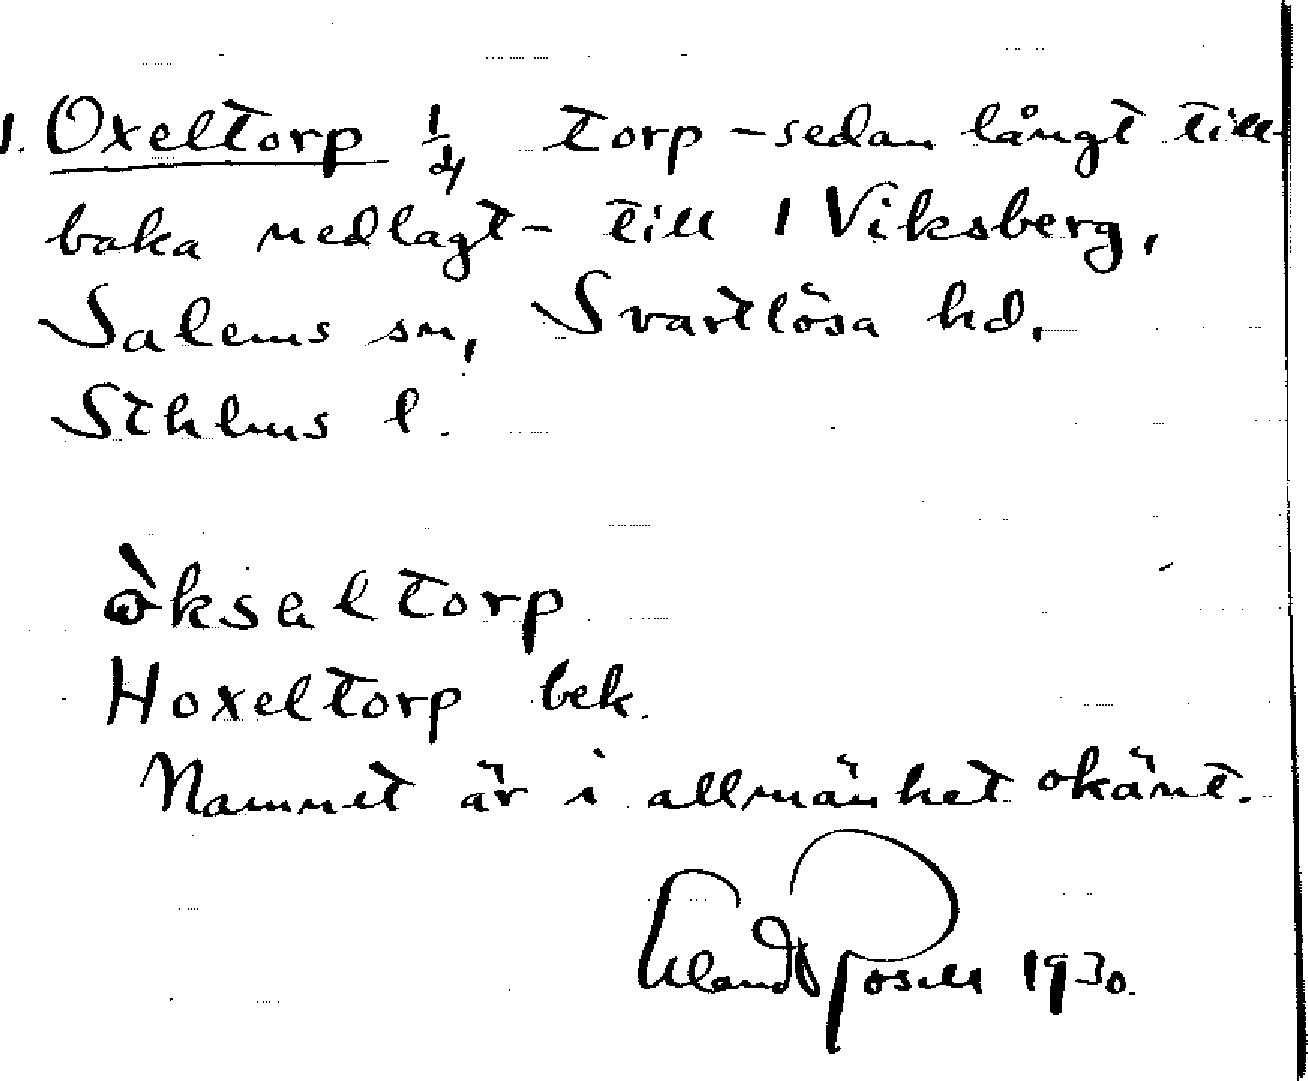 1. Oxeltorp 1/4 torp - sedan långt till-
baka nedlagt - till 1 Viksberg,
Salems sn, Svartlösa hd,
Sthlms l.
òksaltorp
Hoxeltorp bek.
Namnet är i allmänhet okänt.
Erland Rosell 1930.